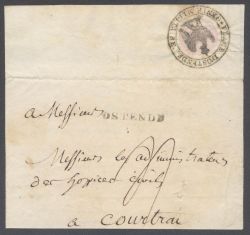 a Messieurs
OSTENDE
Messieurs les administrateurs
des hospices civils
a Courtrai